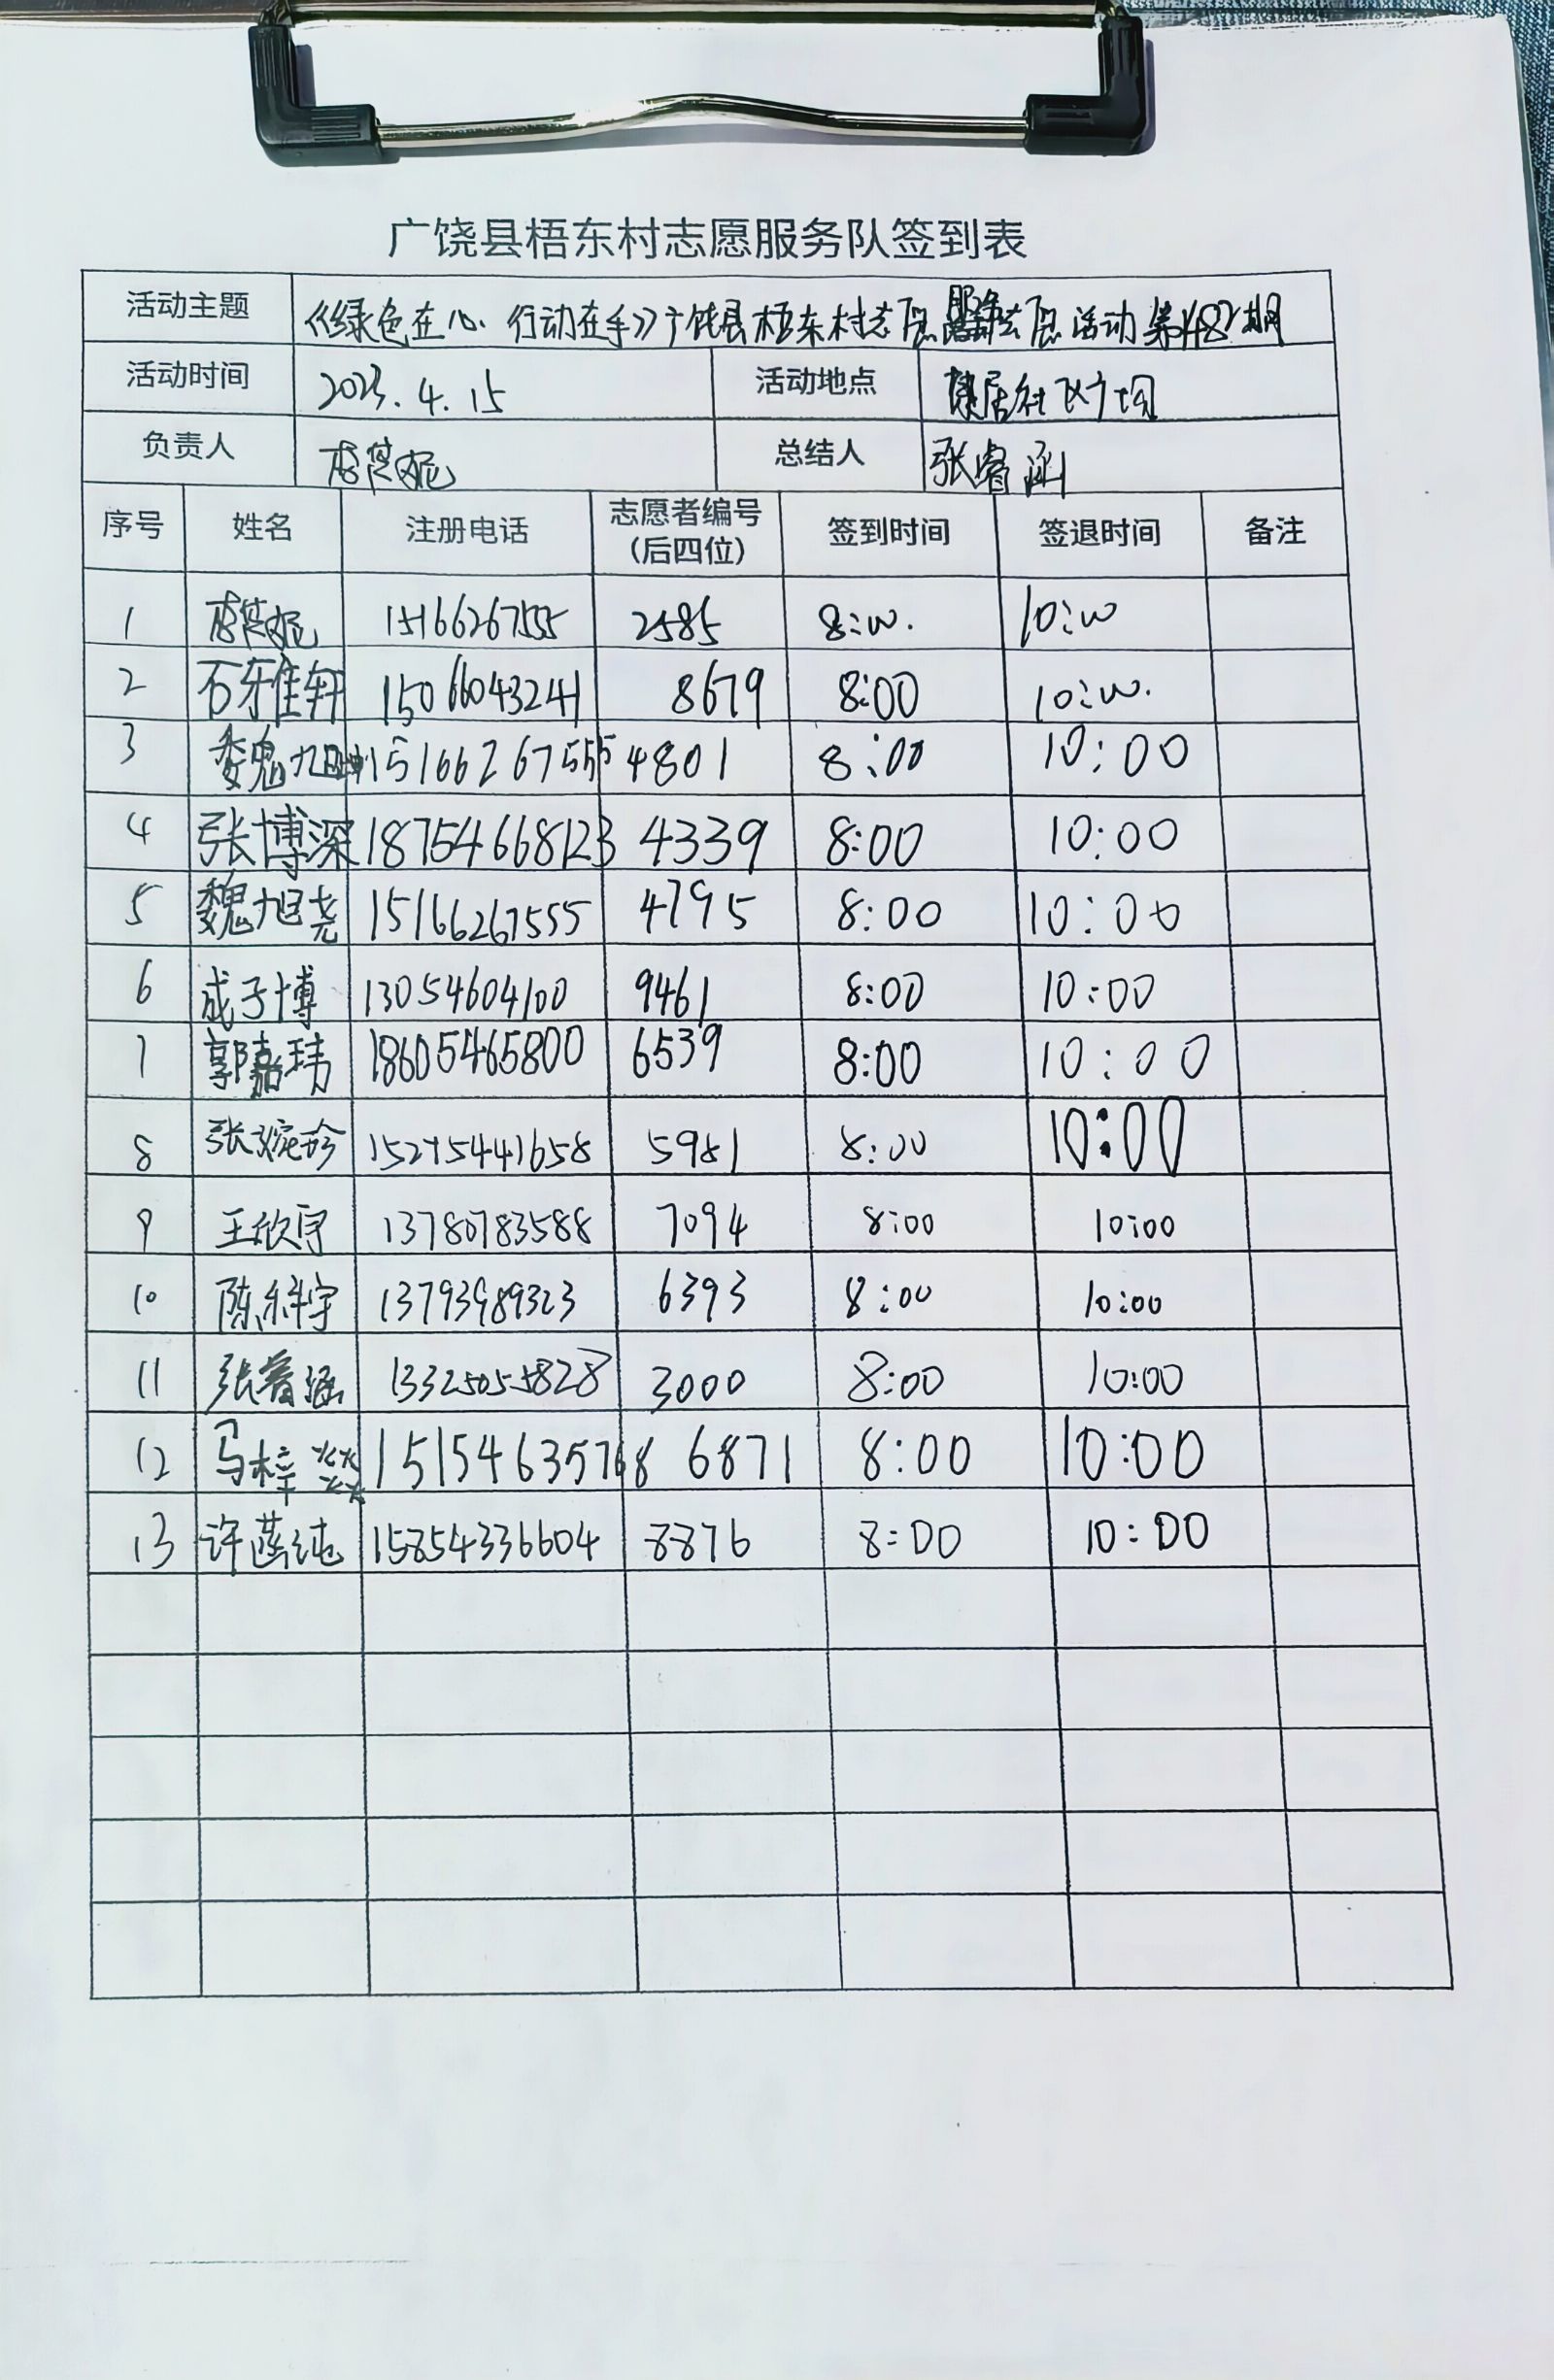 广饶县梧东村志愿服务队签到表
活动主题 《绿色在心、行动在手》广饶县梧东村志愿服务志愿活动第1482期
活动时间 2023.4.15 活动地点 康居社区广场
负责人 总结人 张睿涵
序号 姓名 注册电话 志愿者编号（后四位） 签到时间 签退时间 备注
1 15166267555 2585 8:00. 10:00
2 石雅轩 15066043241 8679 8:00 10:00.
3 魏旭坤 15166267555 4801 8:00 10:00
4 张博深 18754668123 4339 8:00 10:00
5 魏旭尧 15166267555 4795 8:00 10:00
6 成子博 13054604100 9461 8:00 10:00
7 郭嘉玮 18605465800 6539 8:00 10:00
8 张婉珍 15275441658 5981 8:00 10:00
9 王欣宇 13780783588 7094 8:00 10:00
10 陈科宇 13793989323 6393 8:00 10:00
11 张睿涵 13325055828 3000 8:00 10:00
12 马梓燚 15154635768 6871 8:00 10:00
13 许菡纯 15854336604 8876 8:00 10:00